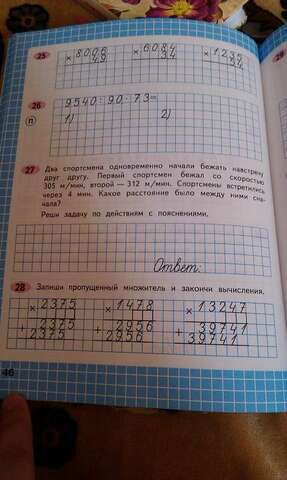 25
× 8006 × 6084 × 1235
49 34 54
26 9540 : 90 · 73 =
п 1) 2)
27 Два спортсмена одновременно начали бежать навстречу
друг другу. Первый спортсмен бежал со скоростью
305 м/мин, второй — 312 м/мин. Спортсмены встретились
через 4 мин. Какое расстояние было между ними сна-
чала?
Реши задачу по действиям с пояснениями.
Ответ:
28 Запиши пропущенный множитель и закончи вычисления.
× 2375 × 1478 × 13247
+ 2375 + 2956 + 39741
2375 2956 39741
46